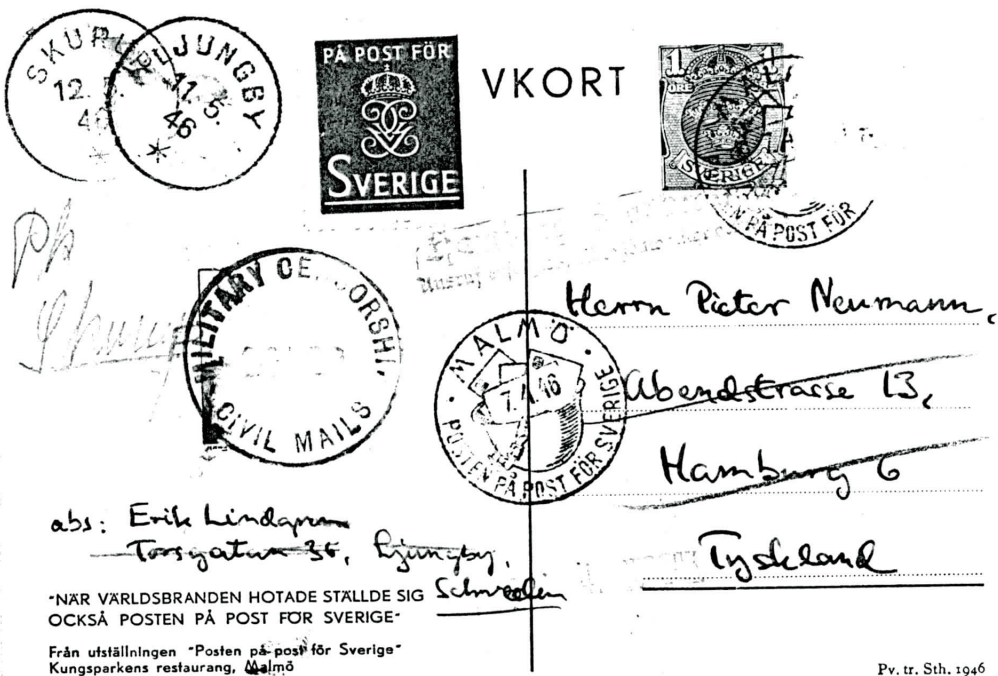 SKURUP
12.
46
LJUNGBY
11.5.
46
PÅ POST FÖR
SVERIGE
VKORT
1
ÖRE
SVERIGE
PÅ POST FÖR
MILITARY CENSORSHI
CIVIL MAILS
MALMÖ
POSTEN PÅ POST FÖR SVERIGE
Herrn Pieter Neumann,
Abendstrasse 13,
Hamburg 6
Tyskland
abs: Erik Lindgren
Torsgatan 36, Ljungby,
Schweden
"NÄR VÄRLDSBRANDEN HOTADE STÄLLDE SIG
OCKSÅ POSTEN PÅ POST FÖR SVERIGE"
Från utställningen "Posten på post för Sverige"
Kungsparkens restaurang, Malmö
Pv. tr. Sth. 1946